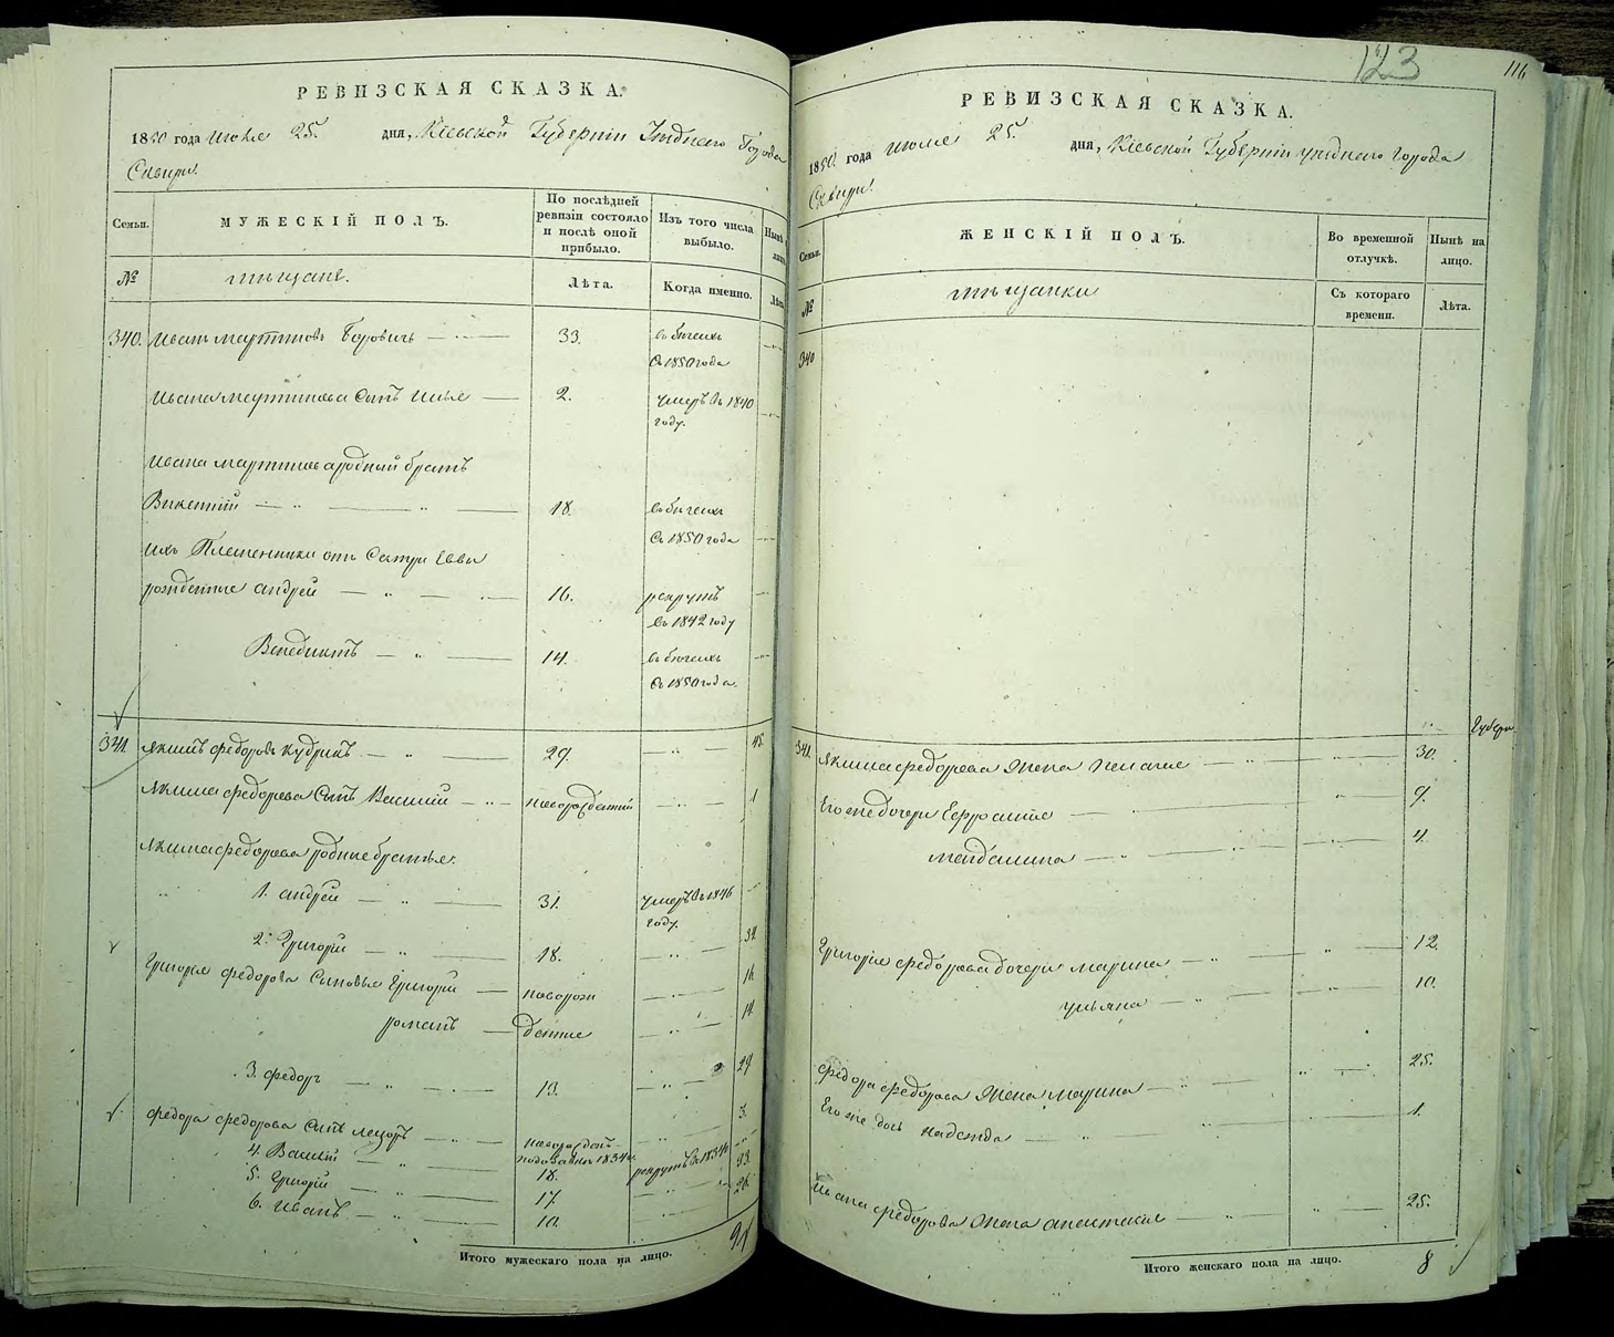 РЕВИЗСКАЯ СКАЗКА.
1850 года июля 25. дня, Кіевской Губерніи Уѣднаго Города
Сквиры.
Семьи.
МУЖЕСКІЙ ПОЛЪ.
По послѣдней ревизіи состояло и послѣ оной прибыло.
Изъ того числа выбыло.
№
мѣщане.
Лѣта.
Когда именно.
340. Иванъ Мартиновъ Боровичъ 33. въ бѣгахъ
съ 1850 года
Ивана Мартинова сынъ Илья 2. умеръ въ 1840
году.
Ивана Мартинова родный братъ
Викентій 18. въ бѣгахъ
съ 1850 года
Ихъ Племенники отъ Сестри Еввы
рожденные Андрей 16. рекрутъ
въ 1842 году
Венедиктъ 14. въ бѣгахъ
съ 1850 года.
341. Якимъ Федоровъ Кудринъ 29. 45.
Якима Федорова Сынъ Василий новорожденный 1
Якима Федорова родные братья:
1. Андрей 31. умеръ въ 1846
году.
2. Григорій 18. 34
Григорія Федорова Сыновья Григорій новорож 16
романъ денные 14
3. Федоръ 13. 29
Федора Федорова Сынъ новорожден 3.
4. Василій 18. рекрутъ въ 1834
5. Григорій 17. 33.
6. Иванъ 10. 26.
Итого мужескаго пола на лицо.
123
116
РЕВИЗСКАЯ СКАЗКА.
1850 года июля 25. дня, Кіевской Губерніи уѣднаго города
Сквиры.
Семьи.
ЖЕНСКІЙ ПОЛЪ.
Во временной отлучкѣ.
Нынѣ на лицо.
№
мѣщанки
Съ котораго времени.
Лѣта.
340
341. Якима Федорова Жена Пелагия 30.
Его же дочери Ефросиния 9.
Магдалина 4.
Григорія Федорова дочери Марина 12.
Ульяна 10.
Федора Федорова Жена Марина 25.
Его же дочь Надежда 1.
Ивана Федорова Жена Анастасия 25.
Итого женскаго пола на лицо. 8